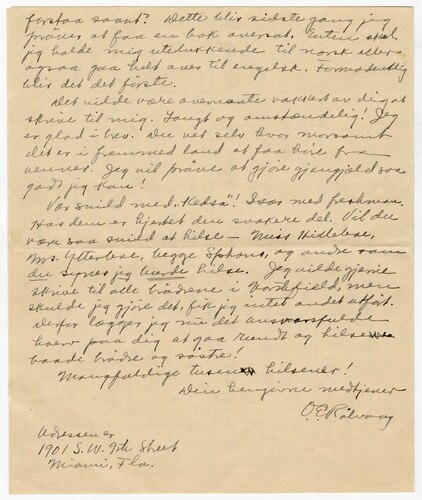 forstaa saant? Dette blir sidste gang jeg
prøver at faa en bok oversat. Enten skal
jeg holde mig utelukkende til norsk eller
ogsaa gaa helt over til engelsk. Formodentlig
blir det det første.
Det vilde være overmaate vakkert av dig at
skrive til mig. Langt og omstændelig. Jeg
er glad i brev. Du vet selv hvor morsomt
det er i fremmed land at faa høre fra
venner. Jeg vil prøve at gjøre gjengjæld saa
godt jeg kan!
Vær snild med "Kedsa"! Især med freshman.
Hos dem er hjertet den svakere del. Vil du
være saa snild at hilse — Miss Hilleboe,
Mrs. Ytterboe, begge Spohns, og andre som
du synes jeg burde hilse. Jeg vilde gjerne
skrive til alle brødrene i Northfield, men
skulde jeg gjøre det, fik jeg intet andet utført.
Derfor lægger jeg nu det ansvarsfulde
hverv paa dig at gaa rundt og hilse
baade brødre og søstre!
Mangfoldige tusen hilsener!
Din hengivne medtjener
O. E. Rølvaag
Adressen er
1901 S.W. 9th Street
Miami, Fla.